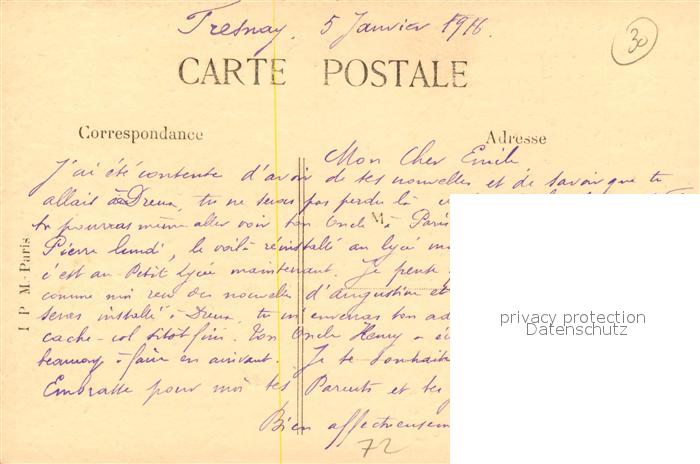 Fresnay, 5 Janvier 1916.
30
CARTE POSTALE
Correspondance
Adresse
Mon Cher Emile
J'ai été contente d'avoir de tes nouvelles et de savoir que tu
allais à Dreux, tu ne seras pas perdu là
tu pourras même aller voir ton Oncle à Paris
M
Pierre lundi, le voilà réinstallé au lycée
c'est au Petit Lycée maintenant. Je pense
comme moi reçu des nouvelles d'Augustine et
seras installé à Dreux, tu m'enverras ton ad
cache-col sitôt fini. Ton Oncle Henry a
beaucoup à faire en arrivant. Je te souhaite
Embrasse pour moi tes Parents et
Bien affectueusem
72
I P M - Paris
privacy protection
Datenschutz